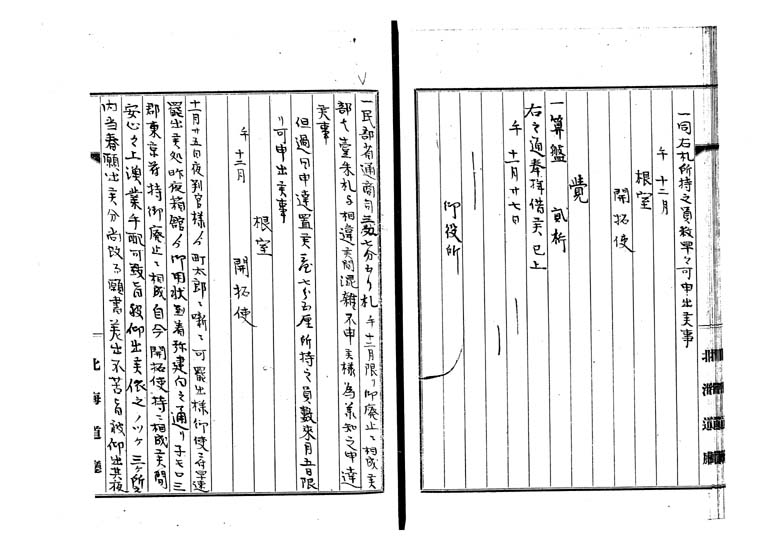 一同右札所持之員数早々可申出候事
午 十二月
根室
開拓使
覚
一算盤 貳桁
右之通奉拝借候已上
午 十一月廿七日
御役所
北海道庁
一民部省通商司 七分五り札 午十二月限り御廃止ニ相成候
部七壹朱札与相違候間混雑不申候様為承知之申達
候事
但過日申達置候壹七分五厘所持之員数来月五日限
り可申出候事
根室
午 十二月 開拓使
十一月廿五日夜判官様ゟ町太郎ニ噺ニ可罷出様仰使ニ付早速
罷出候処昨夜箱館ゟ御用状到着弥建向之通り子モロ三
郡東京府持御廃止ニ相成自今開拓使持ニ相成候間
安心之上漁業手配可致旨被仰出候依之ノツケ三ヶ所
内当春願出候分尚改而願書差出不苦旨被仰出其夜
北海道庁